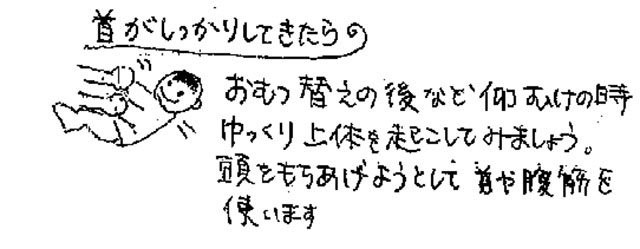 首がしっかりしてきたらの
おむつ替えの後など仰むけの時
ゆっくり上体を起こしてみましょう。
頭をもちあげようとして首や腹筋を
使います